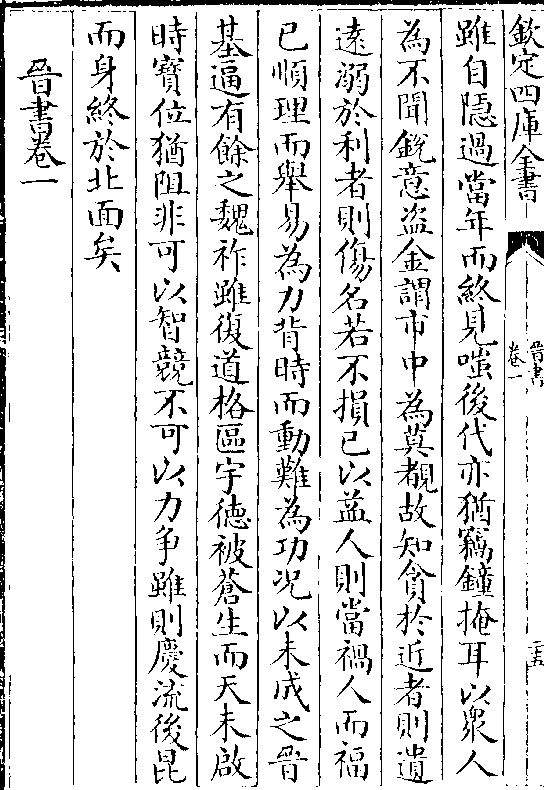 欽定四庫全書
晉書
卷一
二五
雖自隱過當年而終見嗤後代亦猶竊鐘掩耳以眾人
為不聞銳意盗金謂市中為莫覩故知貪於近者則遺
逺溺於利者則傷名若不損已以益人則當禍人而福
已順理而舉易為力背時而動難為功况以未成之晉
基逼有餘之魏祚雖復道格區宇徳被蒼生而天未啟
時寶位猶阻非可以智競不可以力争雖則慶流後昆
而身終於北面矣
晉書卷一